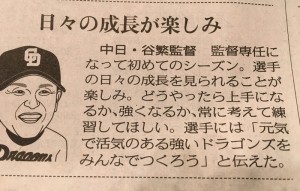 日々の成長が楽しみ
中日・谷繁監督　監督専任に
なって初めてのシーズン。選手
の日々の成長を見られることが
楽しみ。どうやったら上手にな
るか、強くなるか、常に考えて練
習してほしい。選手には「元気
で活気のある強いドラゴンズを
みんなでつくろう」と伝えた。
CD
Dragons